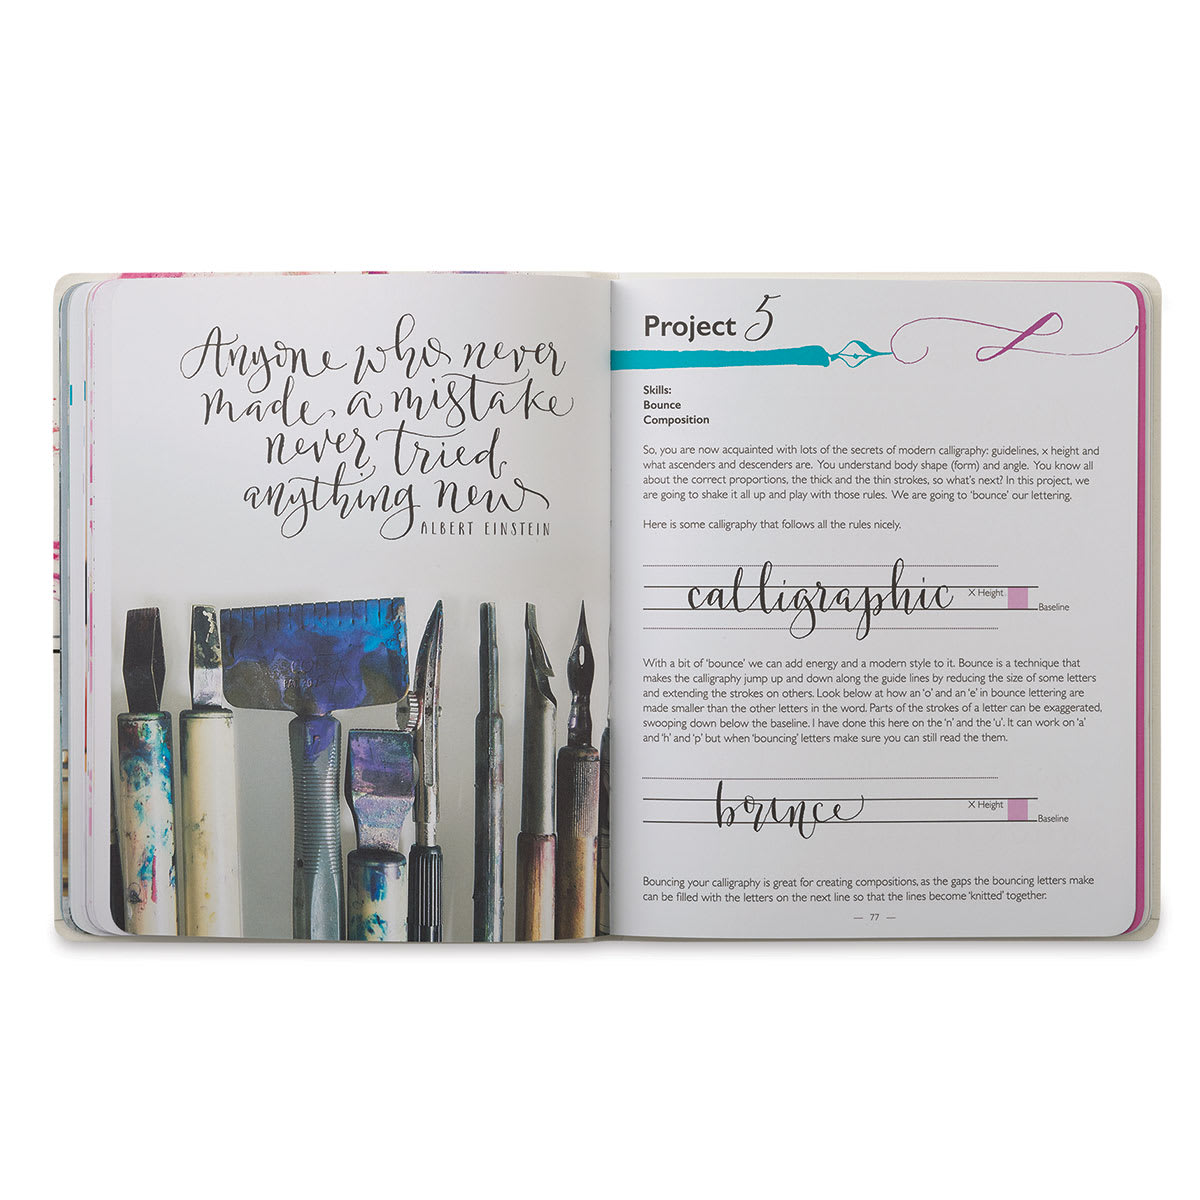 Anyone who never
made a mistake
never tried
anything new
ALBERT EINSTEIN
Project 5
Skills:
Bounce
Composition
So, you are now acquainted with lots of the secrets of modern calligraphy: guidelines, x height and
what ascenders and descenders are. You understand body shape (form) and angle. You know all
about the correct proportions, the thick and the thin strokes, so what's next? In this project, we
are going to shake it all up and play with those rules. We are going to 'bounce' our lettering.
Here is some calligraphy that follows all the rules nicely.
calligraphic X Height
Baseline
With a bit of 'bounce' we can add energy and a modern style to it. Bounce is a technique that
makes the calligraphy jump up and down along the guide lines by reducing the size of some letters
and extending the strokes on others. Look below at how an 'o' and an 'e' in bounce lettering are
made smaller than the other letters in the word. Parts of the strokes of a letter can be exaggerated,
swooping down below the baseline. I have done this here on the 'n' and the 'u'. It can work on 'a'
and 'h' and 'p' but when 'bouncing' letters make sure you can still read the them.
bounce X Height
Baseline
Bouncing your calligraphy is great for creating compositions, as the gaps the bouncing letters make
can be filled with the letters on the next line so that the lines become 'knitted' together.
— 77 —